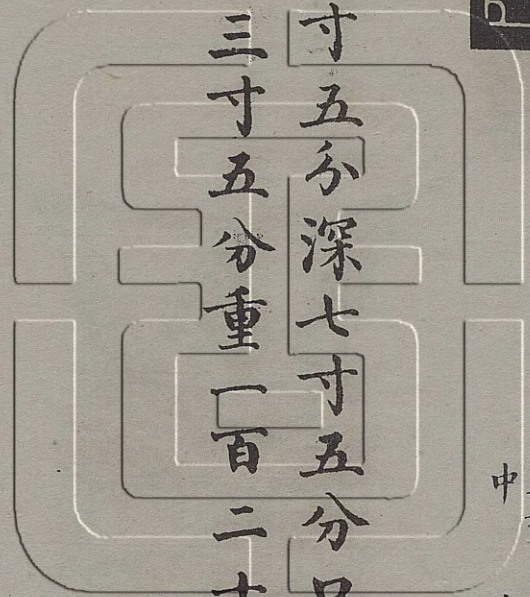 寸五分深七寸五分口
三寸五分重一百二十
中